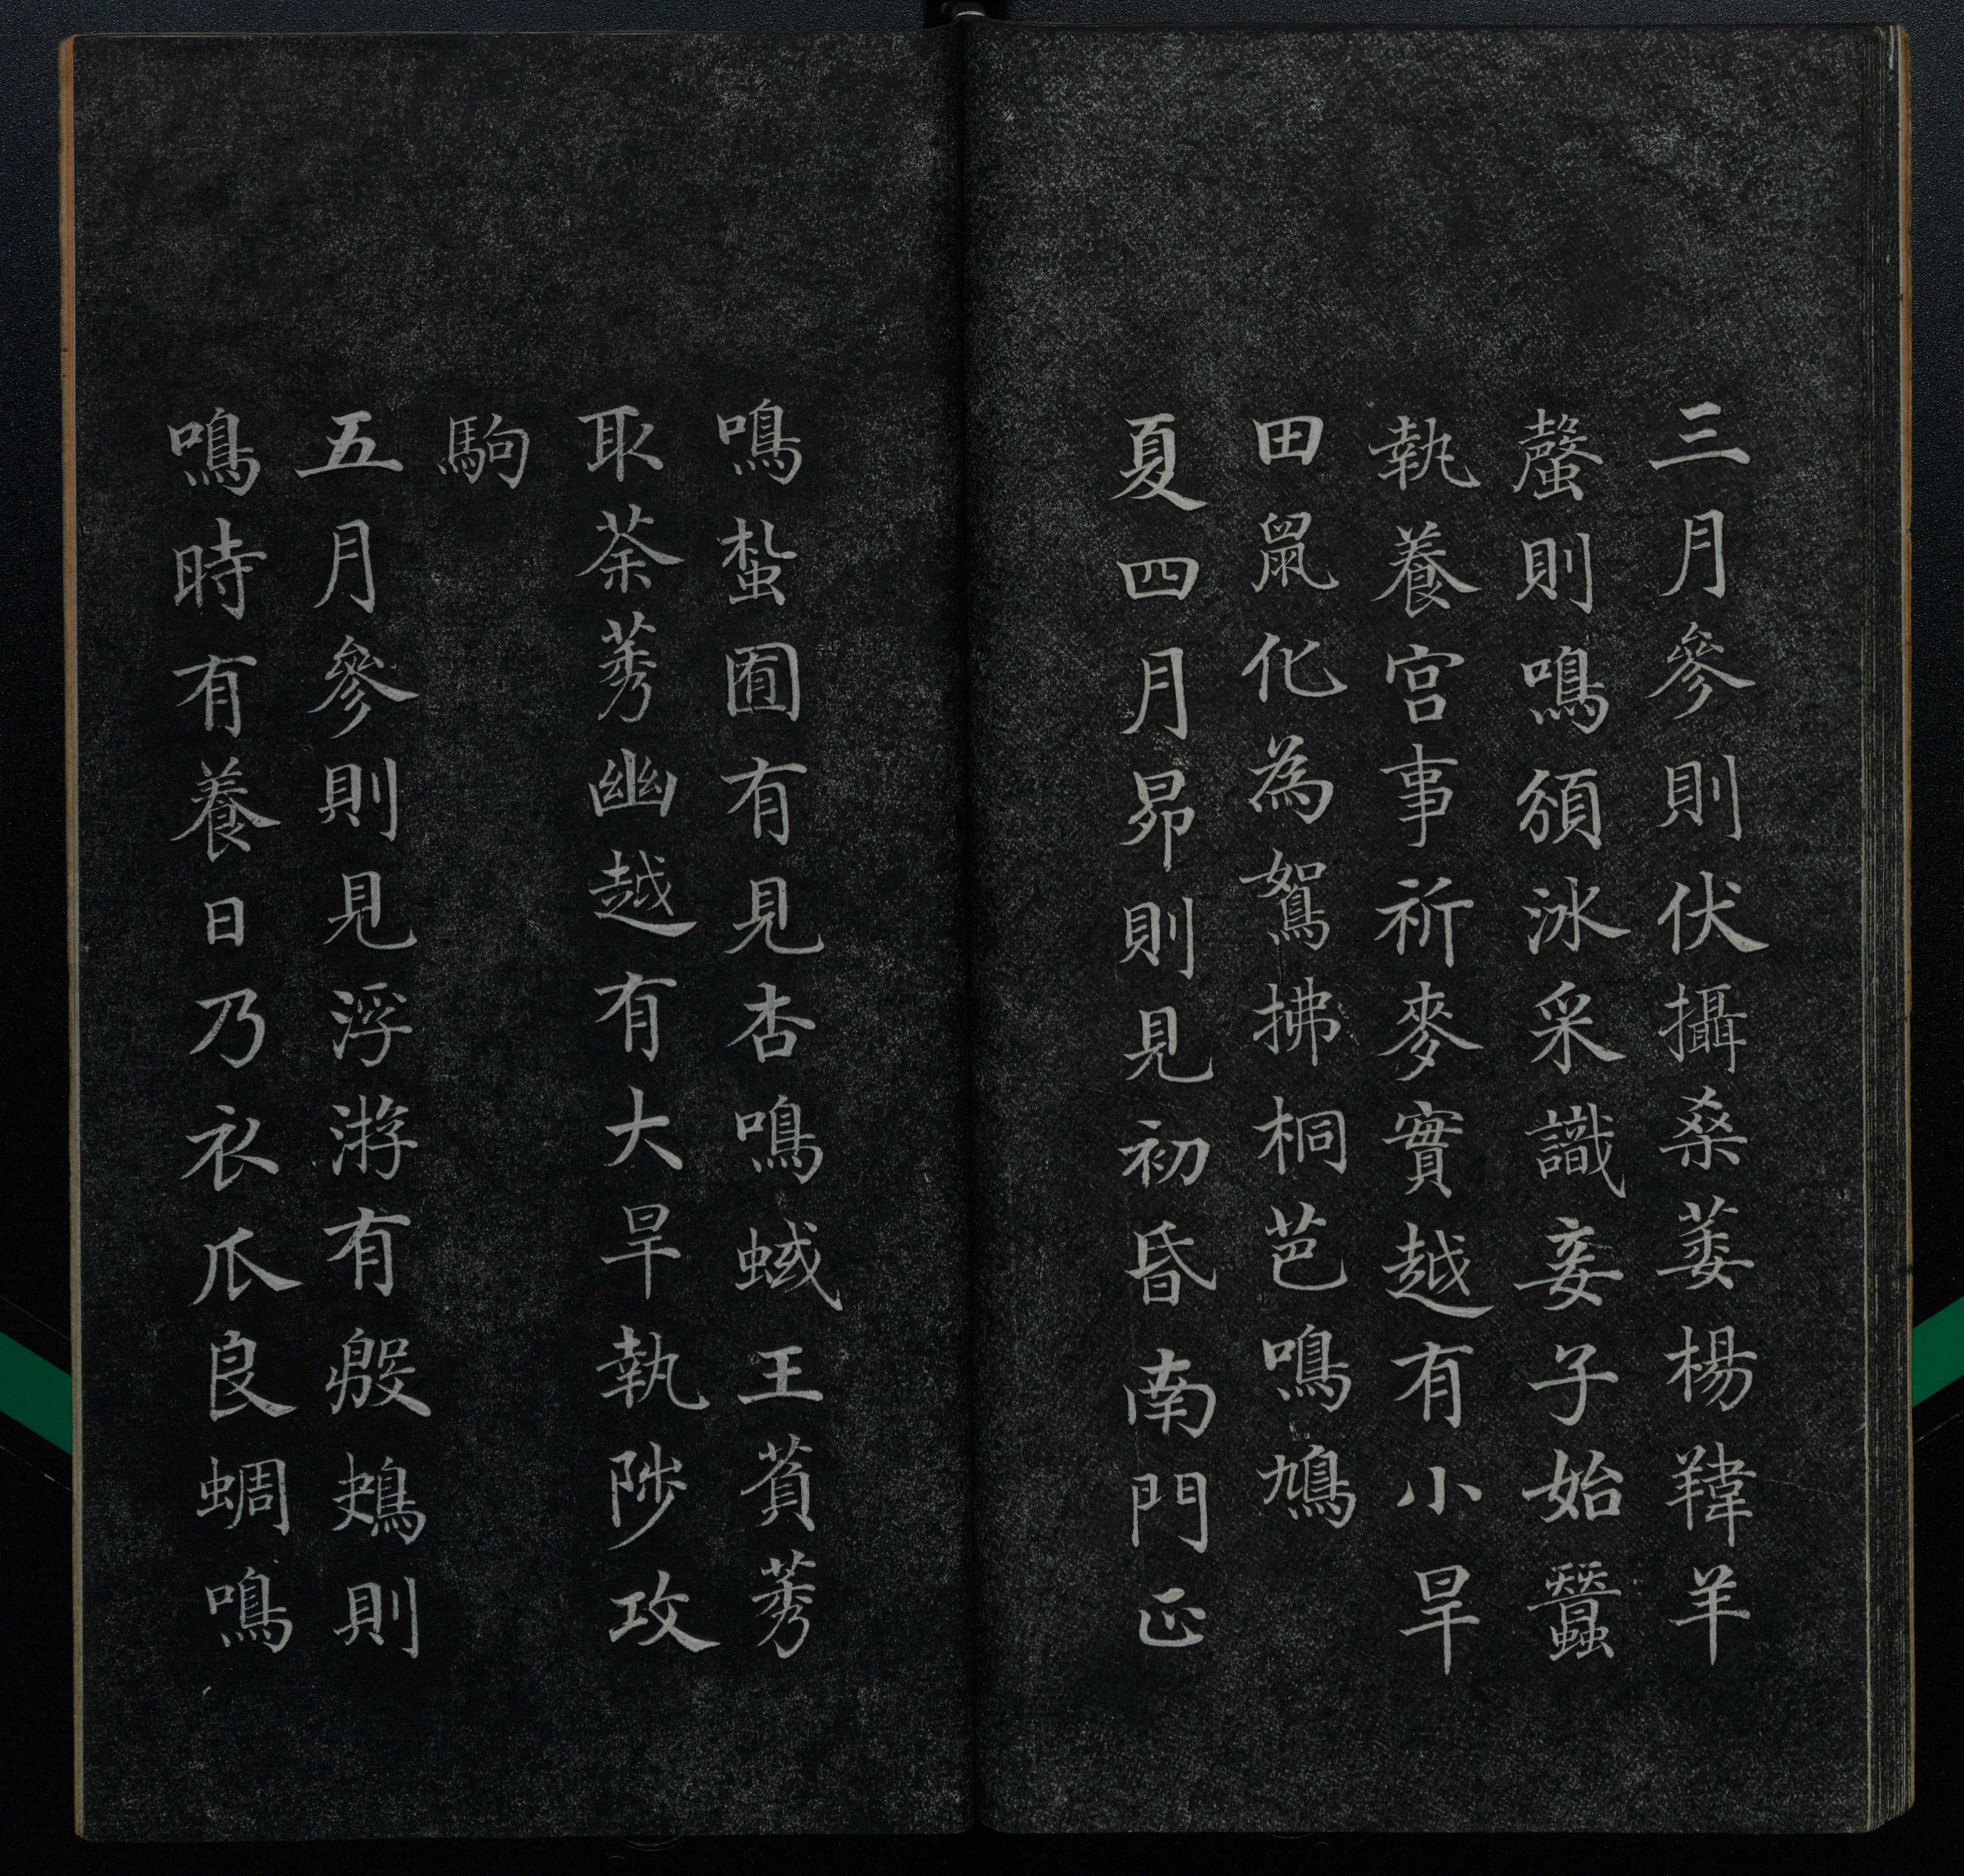 三月參則伏攝桑萎楊䍷羊
螜則鳴頒冰采識妾子始蠶
執養宮事祈麥實越有小旱
田鼠化為鴽拂桐芭鳴鳩
夏四月昴則見初昏南門正
鳴蚻囿有見杏鳴蜮王萯莠
取荼莠幽越有大旱執陟攻
駒
五月參則見浮游有殷鴂則
鳴時有養日乃衣瓜良蜩鳴